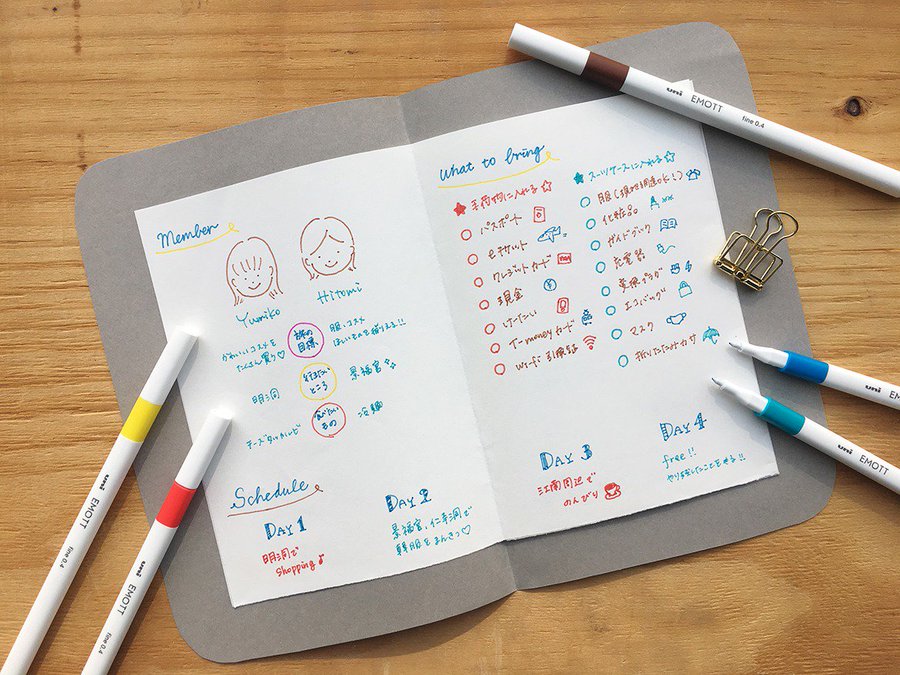 Member
Yuriko
Hitomi
かわいいコスメを
たくさん買う♡
旅の
目標
服、コスメ
ほしいものを揃える!!
明洞
行きたい
ところ
景福宮
チーズタッカルビ
食べたい
もの
冷麺
Schedule
DAY 1
明洞で
Shopping♪
DAY 2
景福宮、仁寺洞で
韓服をまんきつ♡
What to bring
★手荷物に入れる☆
パスポート
eチケット
クレジットカード
現金
けーたい
T-moneyカード
Wi-Fi 引換
★スーツケースに入れる☆
服(現地調達OK!)
化粧品
ガイドブック
充電器
変換プラグ
エコバッグ
マスク
折りたたみカサ
DAY 3
江南周辺で
のんびり
DAY 4
free!!
やり残したことをする!!
uni EMOTT fine 0.4
uni EMOTT fine 0.4
uni EMOTT fine 0.4
uni
uni EMOTT